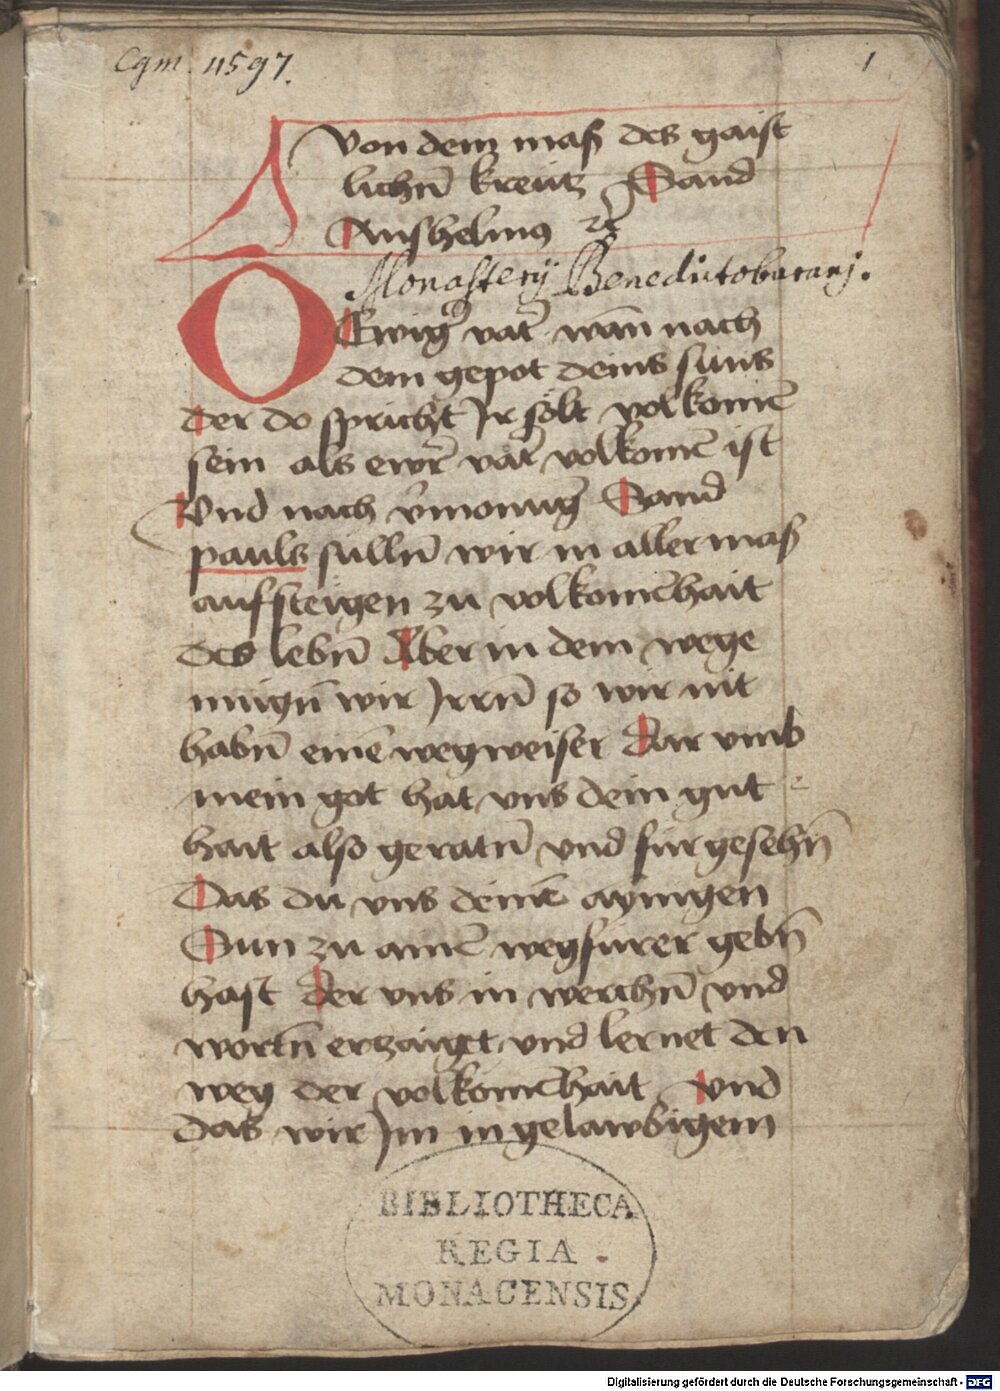 Cgm. 4597.
1
Von dem maß des gaist
lichn̄ kreutz Sand
Anshelmus ꝛc
Monasterij Benedictobarani.
O Ewigr̄ vatr̄ wan̄ nach
dem gepot deins suns
der do spricht Jr sölt volkomē
sein als ewr̄ vatr̄ volkomē ist
Vnd nach v̄monūg Sand
pauls sülln̄ wir in aller maß
aufsteigen zu volkomēhait
des lebn̄ Aber in dem wege
mügn̄ wir Jrrn̄ so wir nit
habn̄ einē wegweiser Dar vmb
mein got hat vns dein gut
hait also geratn̄ vnd fürgesehn̄
Das du vns deinē aynigen
Sun zu ainē wegfürer gebn̄
hast Der vns in werchn̄ vnd
wortn̄ erzaiget vnd lernet den
weg der volkomēhait Vnd
das wir Jm in gelawbigem
BIBLIOTHECA
REGIA
MONACENSIS.
Digitalisierung gefördert durch die Deutsche Forschungsgemeinschaft - DFG